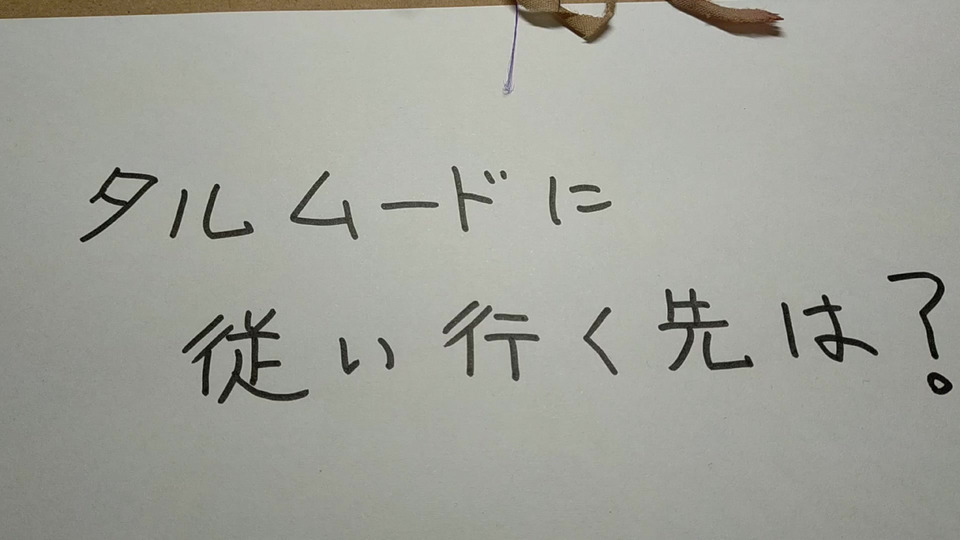 タルムードに
従い行く先は?